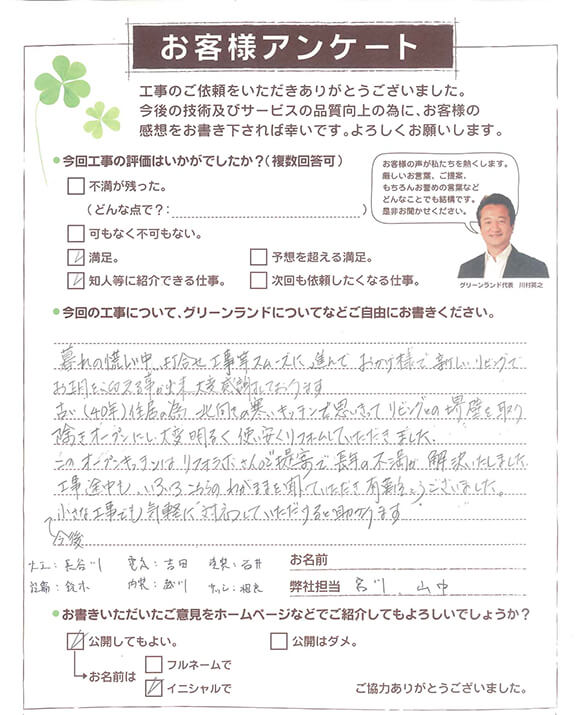 お客様アンケート
工事のご依頼をいただきありがとうございました。
今後の技術及びサービスの品質向上の為に、お客様の
感想をお書き下されば幸いです。よろしくお願いします。
今回工事の評価はいかがでしたか？（複数回答可）
不満が残った。
（どんな点で？: ）
可もなく不可もない。
満足。
予想を超える満足。
知人等に紹介できる仕事。
次回も依頼したくなる仕事。
お客様の声が私たちを熱くします。
厳しいお言葉、ご提案、
もちろんお誉めの言葉など
どんなことでも結構です。
是非お聞かせください。
グリーンランド代表 川村英之
今回の工事について、グリーンランドについてなどご自由にお書きください。
暮れの慌しい中、打合せ、工事等スムーズに進んで おかげ様で新しいリビングで
お正月を迎える事が出来 大変感謝しております
古い（40年）住居の為 北向きの寒いキッチンを思いきって リビングとの境壁を取り
除きオープンにし 大変明るく 使い安くリフォームしていただきました。
このオープンキッチンは リフォラボさんのご提案で 長年の不満が 解決いたしました
工事途中も、いろいろこちらのわがままを聞いていただき有難とうございました。
小さな工事でも 気軽に対応していただけると助かります
今後
大工:長谷川 電気:吉田 塗装:石井
設備:鈴木 内装:
お名前
弊社担当 宮川、山中
お書きいただいたご意見をホームページなどでご紹介してもよろしいでしょうか？
公開してもよい。
公開はダメ。
お名前は
フルネームで
イニシャルで
ご協力ありがとうございました。